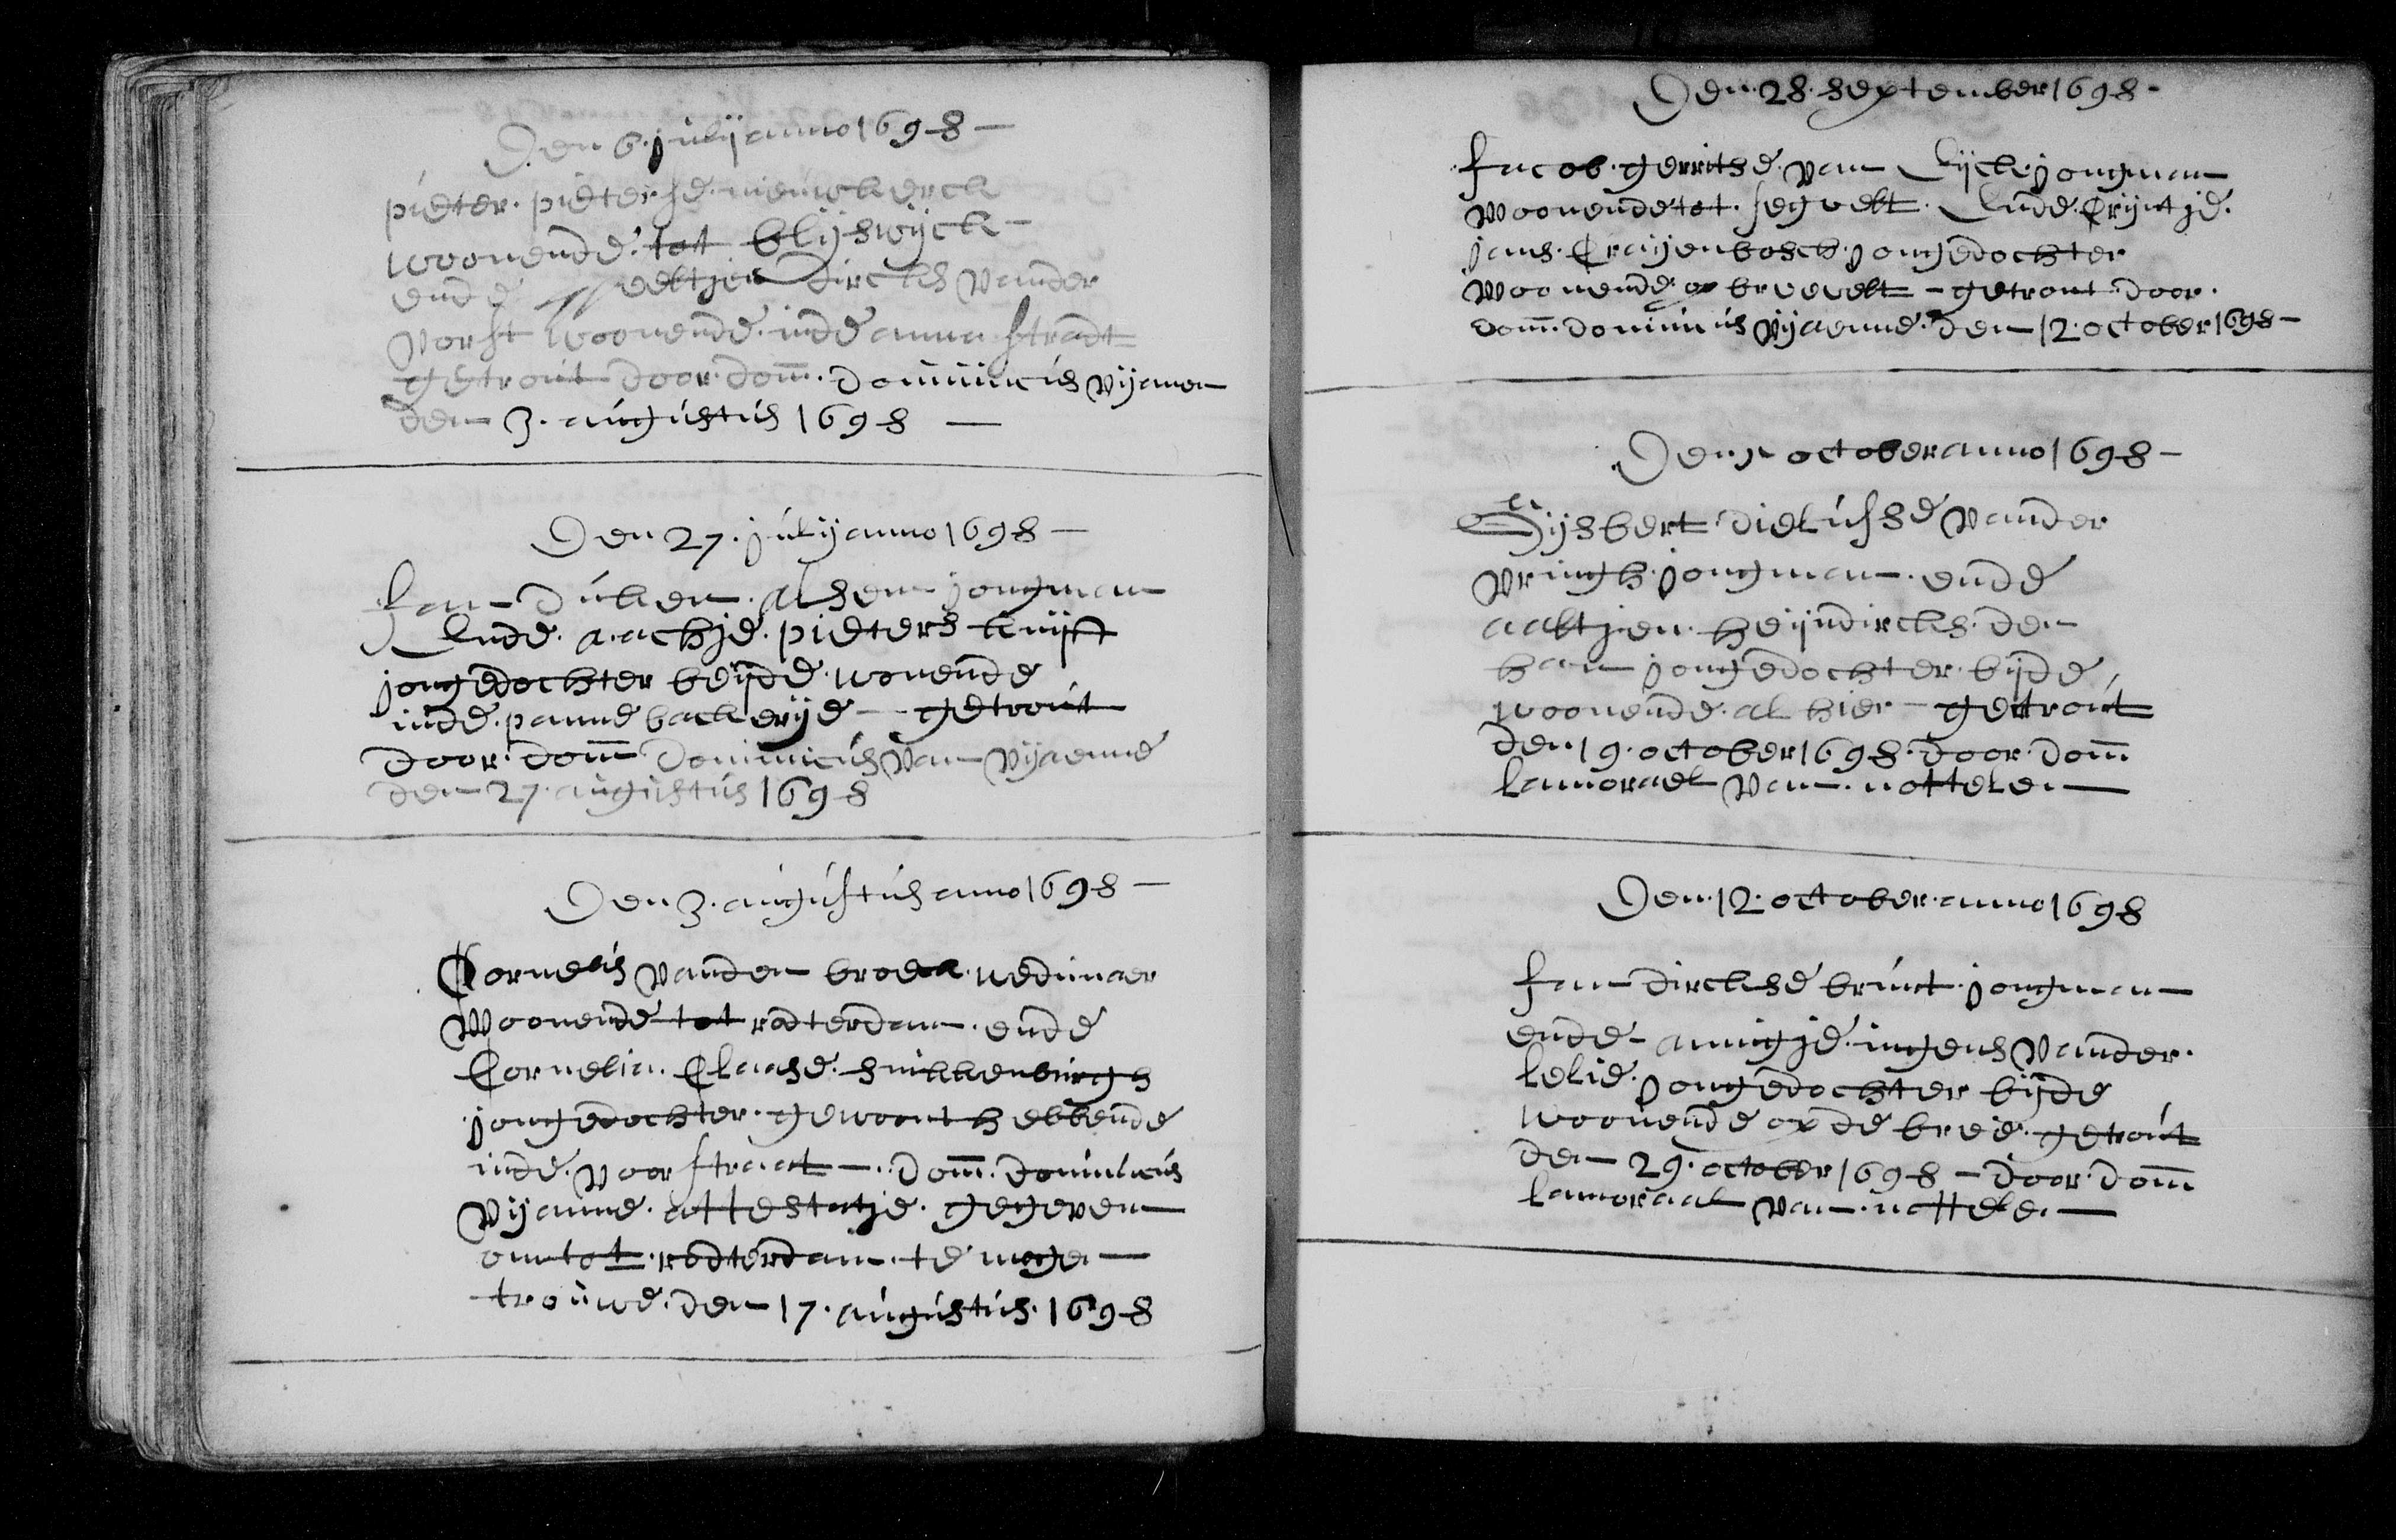 Den 6. julij anno 1698 —
pieter. pieterse. nieukerck
woonende. tot blijswijck —
ende Neeltjen Dircks vander
vorst woonende. inde anna straadt
getrout door. dom. dominicus vijanen
den 3. augustus 1698 —
Den 27. julij anno 1698 —
Jan Duken. alsen jongman
Ende. aachje. pieters kuijff
jongedochter beijde. wonende
inde. panne backerije — getrout
door. dom dominicus van vijaenne
den 27. augustus 1698
Den 3. augustus anno 1698 —
Cornelis vanden broeck. wedunaer
woonende tot rotterdam. ende
Cornelia. Claase. suikkenburgh
jongedochter. gewoont hebbende
inde. voorstraat —. dom. dominicus
vijanne. attestatje. gegeven
om tot. rotterdam. te moge
trouwe. den 17. augustus. 1698
Den. 28. september 1698 -
Jacob. gerritse. van Eijck. jongman
woonende tot. segvelt. Ende. Crijntje.
jans. Craijenbosch. jongedochter
woonende op breevelt — getrout door.
dom. dominicus vijaenne. den 12. october 1698 —
Den october anno 1698 —
Gijsbert. dielufse vander
vringh. jongman. ende
aaltjen. heijndircks. den
ham jongedochter. bijde
woonende. al hier — getrout
den. 19. october 1698. door. dom
lamorael van. nottelen —
Den. 12. october. anno 1698
Jan dirckse bruut. jongman
ende annigje. ingens vander.
lelie. jongedochter bijde
woonende op de bree. getrout
den 29. october 1698 — door. dom
lamoraal van. nottelen —